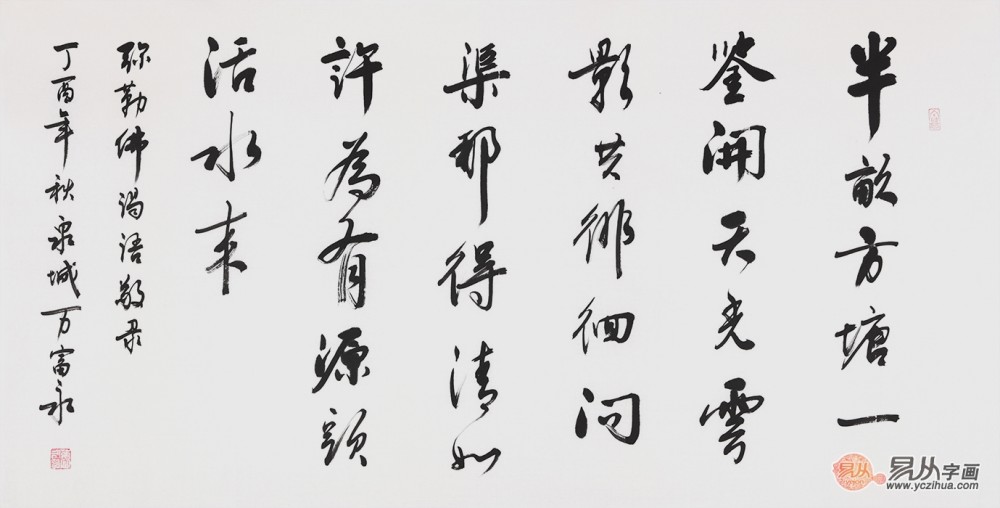 半畝方塘一
鉴開天光雲
影共徘徊问
渠那得清如
許為有源頭
活水来
弥勒佛偈语敬录
丁酉年秋泉城万富永
易从
易从字画
www.yczihua.com